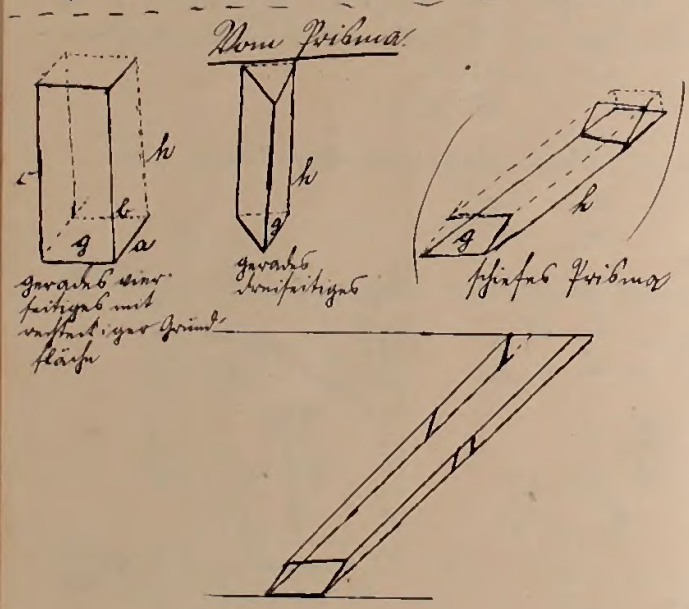 Vom Prisma.
c
h
b
g
a
h
g
h
g
gerades vier-
seitiges mit
rechteckiger Grund-
fläche
gerades
dreiseitiges
schiefes Prisma